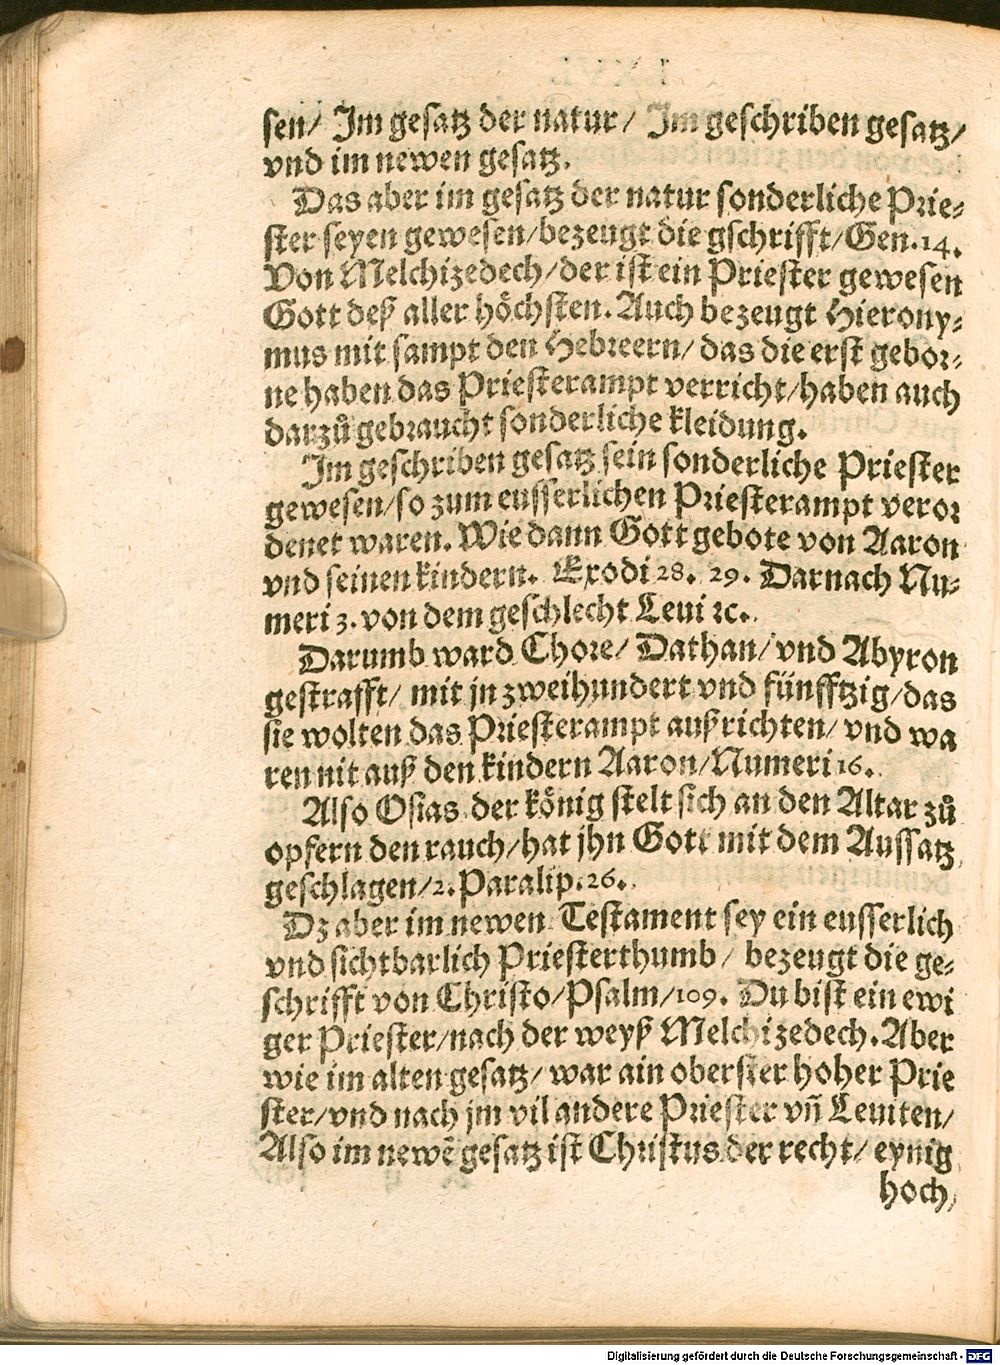 sen/ Im gesatz der natur/ Im geschriben gesatz/
vnd im newen gesatz.
Das aber im gesatz der natur sonderliche Prie⸗
ster seyen gewesen/bezeugt die gschrifft/Gen.14.
Von Melchizedech/der ist ein Priester gewesen
Gott deß aller höchsten. Auch bezeugt Hierony⸗
mus mit sampt den Hebreern/ das die erst gebor⸗
ne haben das Priesterampt verricht/haben auch
darzů gebraucht sonderliche kleidung.
Im geschriben gesatz sein sonderliche Priester
gewesen/so zum eusserlichen Priesterampt veror
denet waren. Wie dann Gott gebote von Aaron
vnd seinen kindern. Exodi 28. 29. Darnach Nu⸗
meri 3. von dem geschlecht Leui ꝛc.
Darumb ward Chore/ Dathan/ vnd Abyron
gestrafft/ mit jn zweihundert vnd fünfftzig/das
sie wolten das Priesterampt außrichten/ vnd wa
ren nit auß den kindern Aaron/Numeri 16.
Also Osias der könig stelt sich an den Altar zů
opfern den rauch/hat jhn Gott mit dem Aussatz
geschlagen/2. Paralip. 26.
Dz aber im newen Testament sey ein eusserlich
vnd sichtbarlich Priesterthumb/ bezeugt die ge⸗
schrifft von Christo/Psalm/109. Du bist ein ewi
ger Priester/nach der weyß Melchizedech. Aber
wie im alten gesatz/ war ain oberster hoher Prie
ster/vnd nach jm vil andere Priester vn̄ Leuiten/
Also im newē gesatz ist Christus der recht/ eynig
hoch,
Digitalisierung gefördert durch die Deutsche Forschungsgemeinschaft - DFG